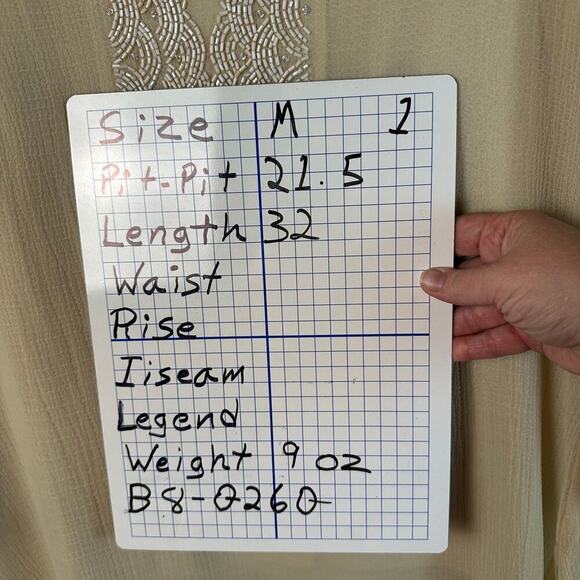 Size M 1
Pit-Pit 21.5
Length 32
Waist
Rise
Iiseam
Legend
Weight 9 oz
B8-0260